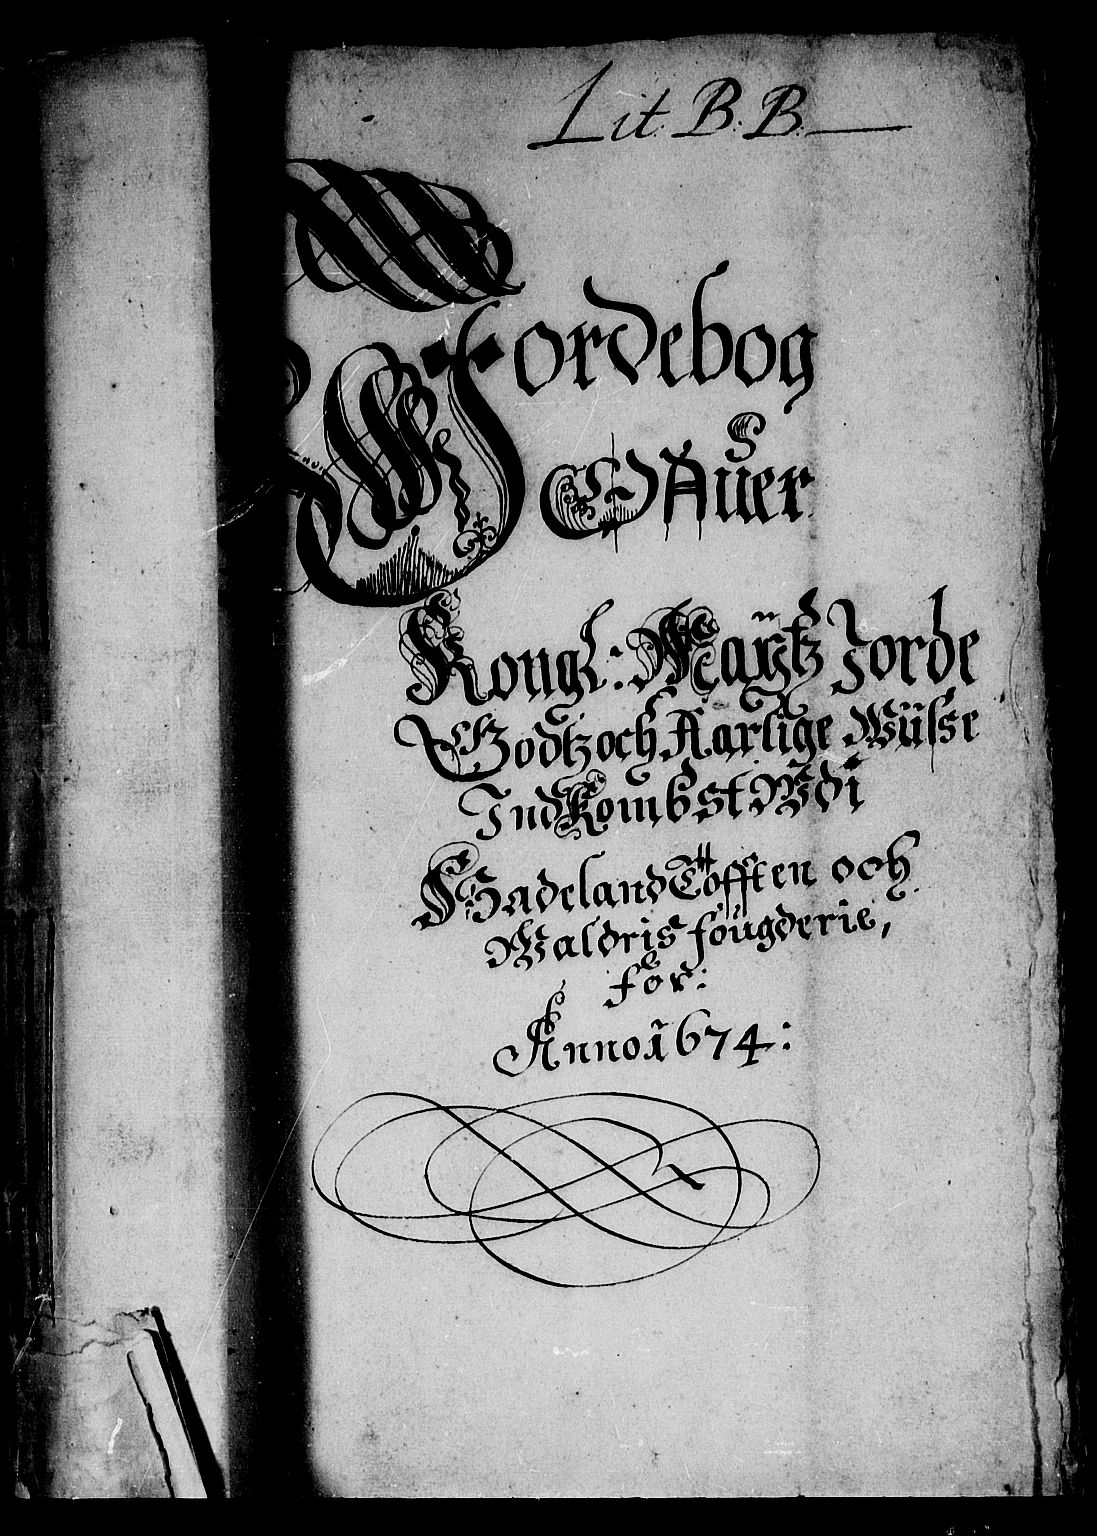 Lit. B. B.
Jordebog
Offuer
Kongl: Maÿtz Jorde
Godtz och Aarlige Wüsse
Indkombst Wdi
Hadeland Tofften och
Waldris fougderie,
for:
Anno 1674: